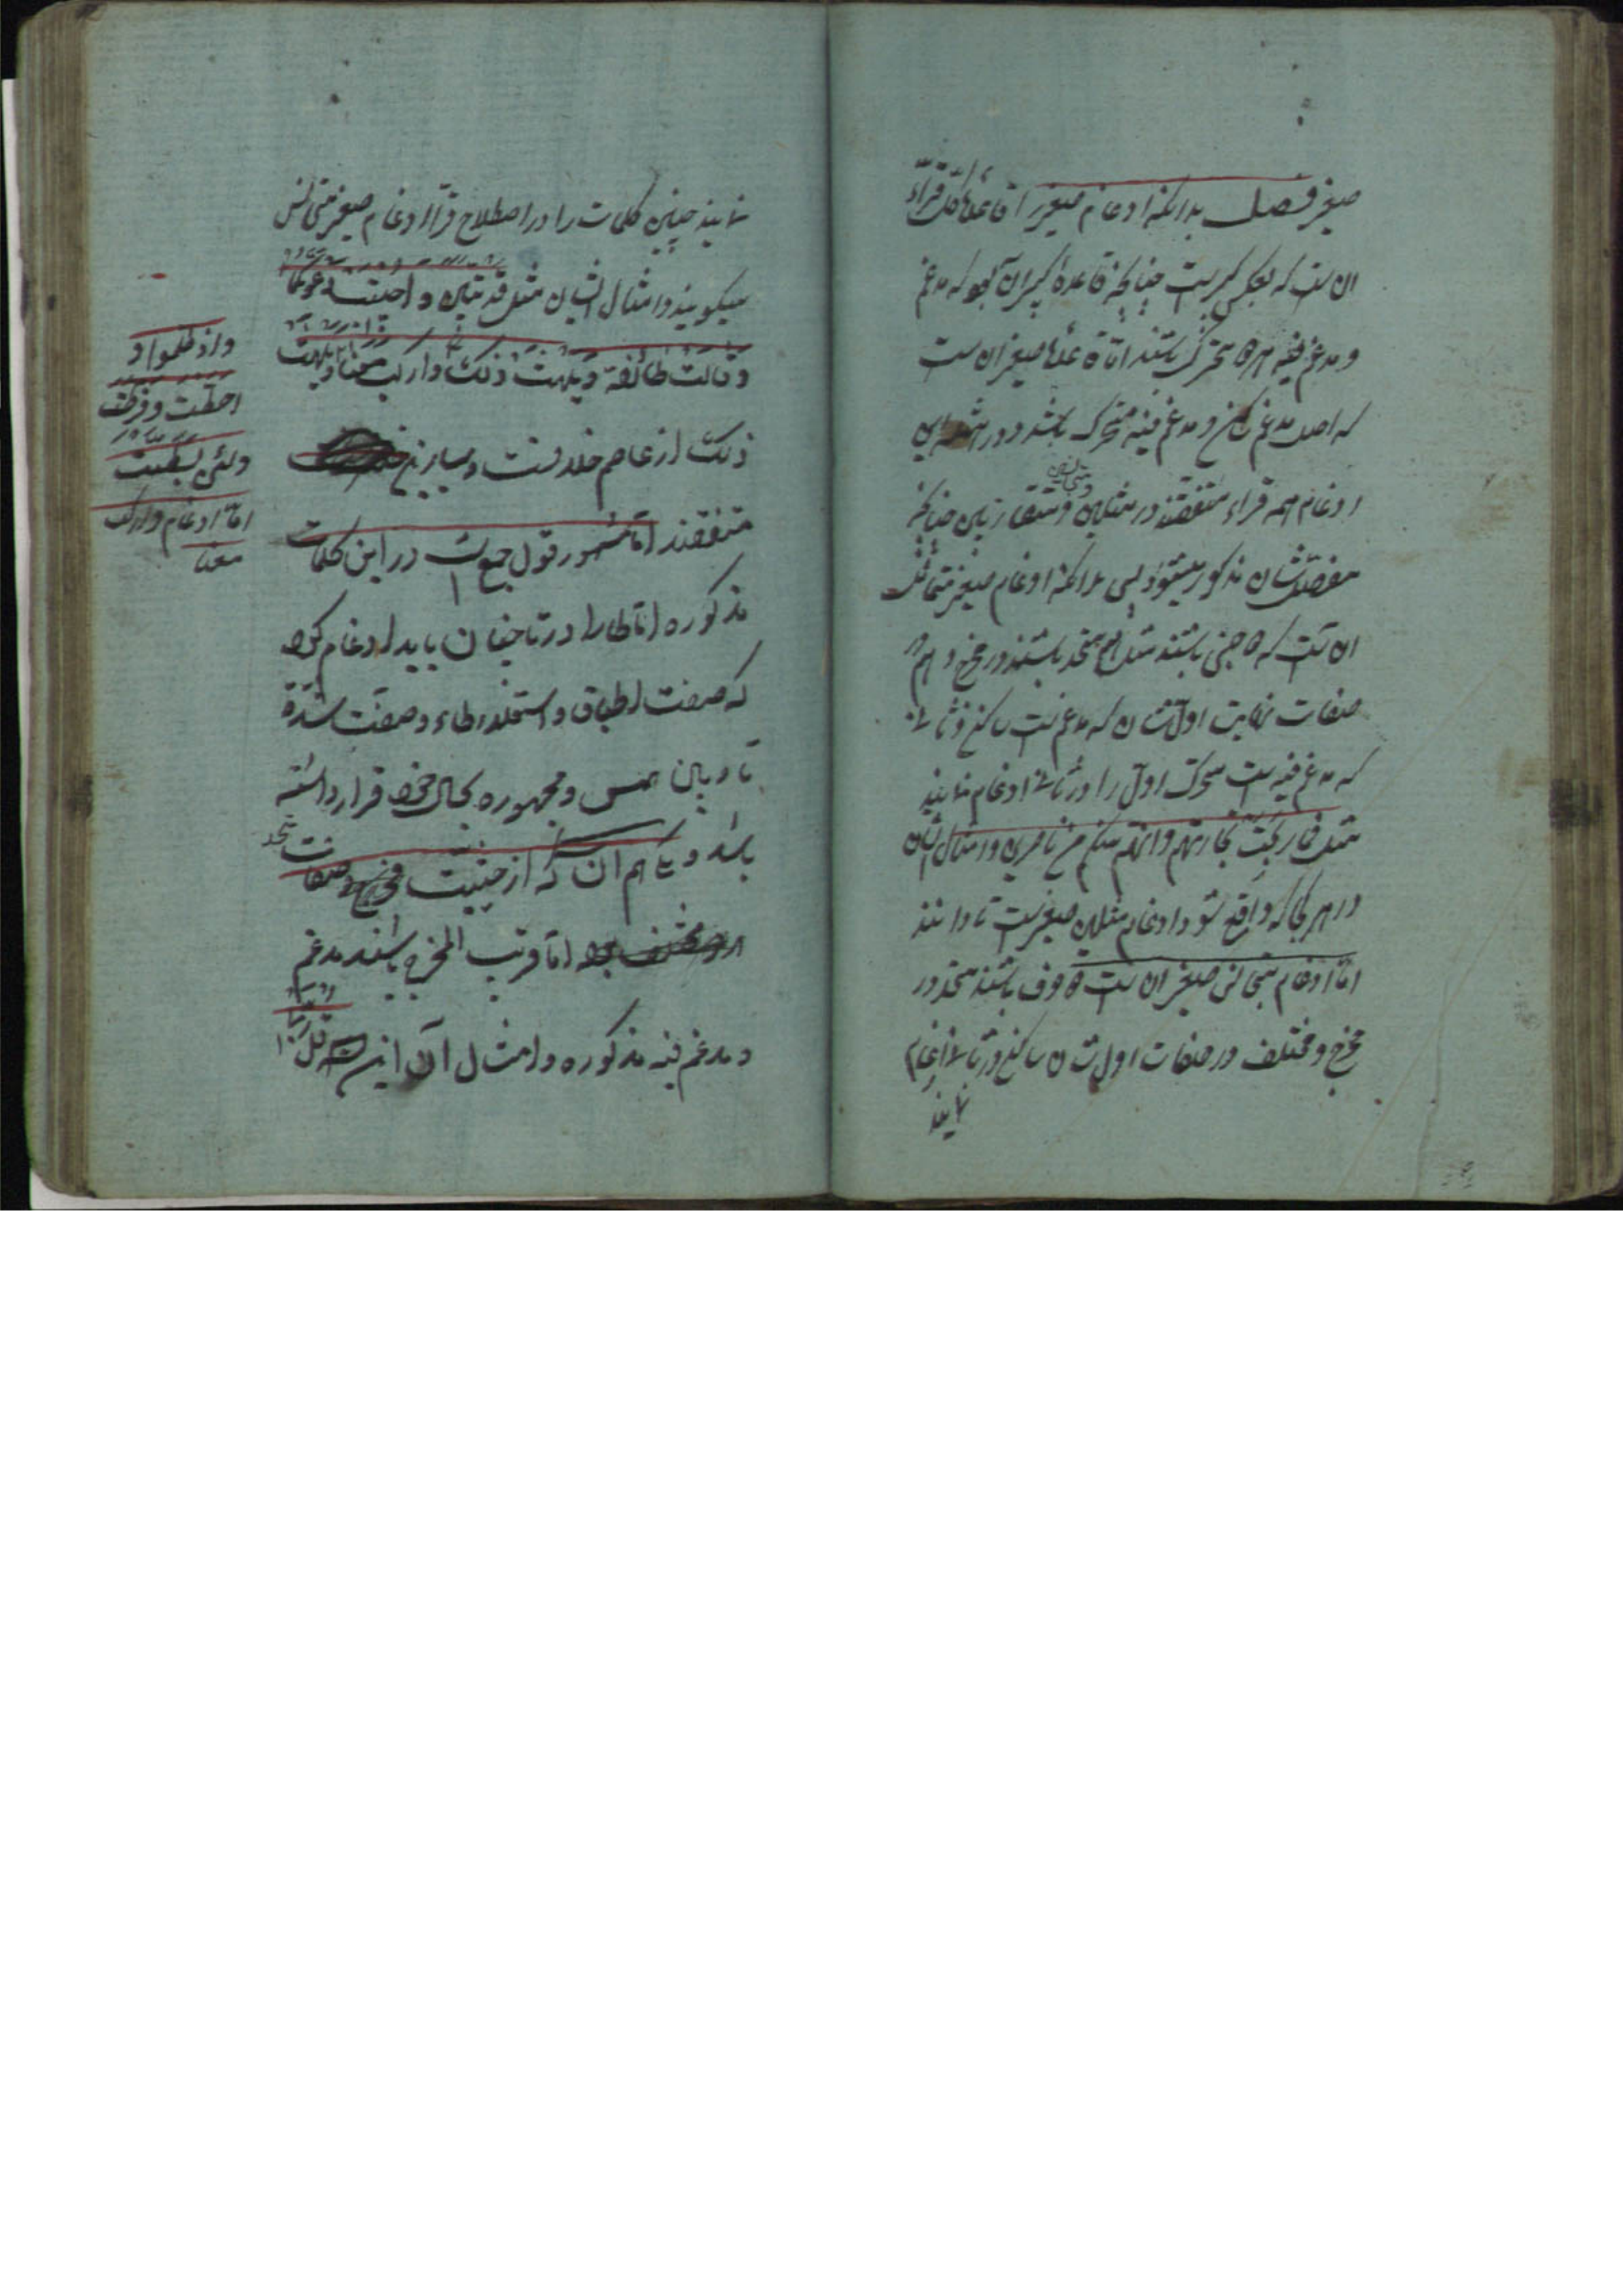 صغیر فصل بدانکه ادغام صغیر اقاعدۀ کل قراء
ان ست که بعکس کبیرست چنانچه قاعدۀ کبیر آن بود که مدغم
و مدغم فیه هر دو متحرک باشند اما قاعدۀ صغیر ان ست
که اصل مدغم ساکن و مدغم فیه متحرک باشد و در این
ادغام همه قراء متفقند در مثلین و متجانسین و متقاربین چنانچه
مفصلشان مذکور میشود پس بدانکه ادغام صغیر متماثل
ان ست که دو جنس باشند متحد باشند در مخرج و هم در
صفات اول شان که مدغم ست ساکن و ثانی
که مدغم فیه ست متحرک اول را در ثانی ادغام نمایند
مثل فما ربحت تجارتهم و ما لهم من ناصرین و امثال ایشان
در هر کجا که واقع شود ادغام مثلین صغیرست تا دانند
اما ادغام متجانس صغیر ان ست دو حرف باشند متحد در
مخرج و مختلف در صفات اول شان ساکن در ثانی ادغام
نمایند
نمایند چنین کلمات را در اصطلاح قرآء ادغام صغیر متجانس
میگویند و امثال ایشان مثل قد تبین و اجیبت دعوتکما
و قالت طائفة و یلهث ذلک و ارکب معنا و یلهث
ذلک از عاصم خلافست و سایرین
متفقند اما مشهور قول جمع ست در این کلمات
مذکوره اما طا را در تا چنان باید ادغام کرد
که صفت اطباق و استعلاء طاء و صفت شدة
تا در میان همس و مجهوره بحال خود قرار داشته
باشد و یکی هم ان که از حیثیت مخرج و صفات متحد
اما قریب المخرج باشند مدغم
و مدغم فیه مذکوره و امثال آن این ست قل رب
و اذ ظلموا و
احطت و فرطت
و لئن بسطت
اما ادغام و ارکب
معنا